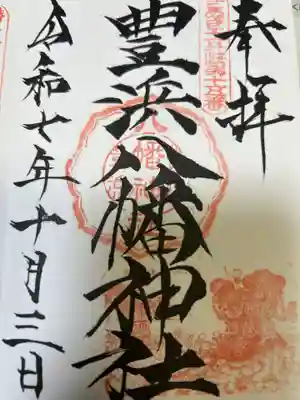 奉拝
豊浜八幡神社
令和七年十月三日